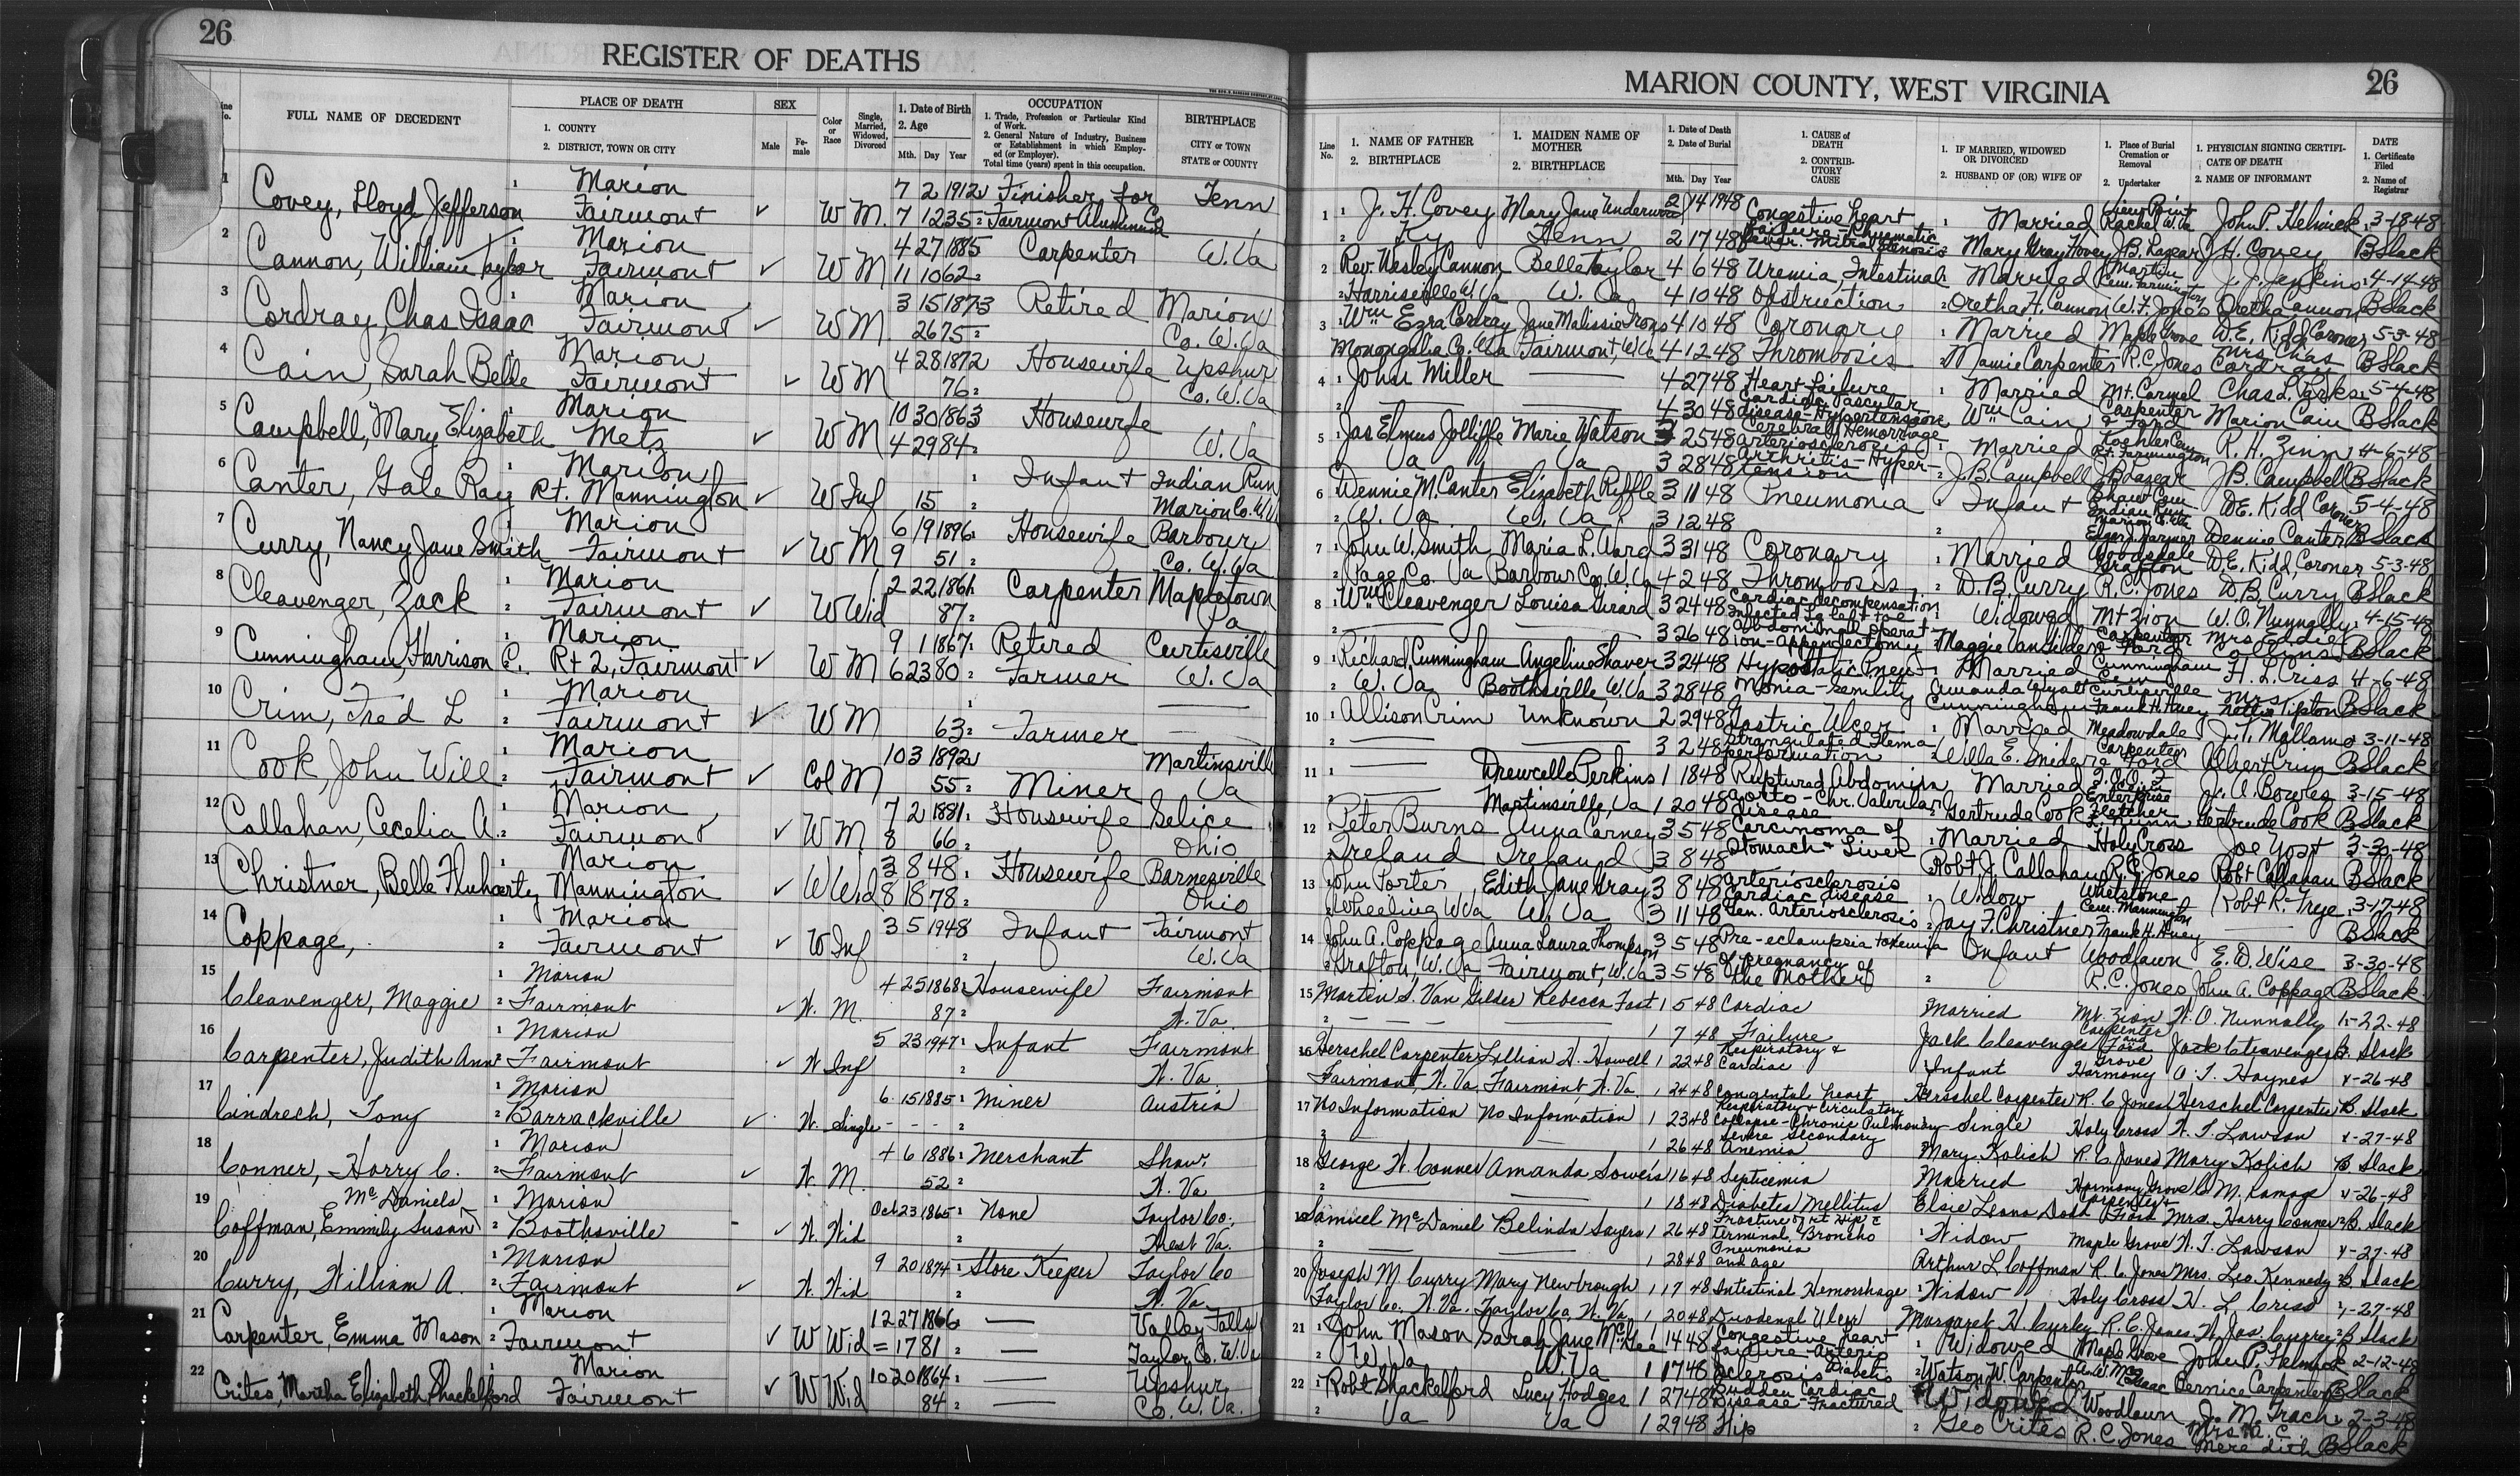 26
REGISTER OF DEATHS
Line No.
FULL NAME OF DECEDENT
PLACE OF DEATH
1. COUNTY
2. DISTRICT, TOWN OR CITY
SEX
Male
Female
Color or Race
Single, Married, Widowed, Divorced
1. Date of Birth
2. Age
Mth. Day Year
OCCUPATION
1. Trade, Profession or Particular Kind of Work.
2. General Nature of Industry, Business or Establishment in which Employed (or Employer).
Total time (years) spent in this occupation.
BIRTHPLACE
CITY or TOWN
STATE or COUNTY
1 Covey, Lloyd Jefferson 1 Marion 7 2 1912 Finisher for Tenn
Fairmont ✓ W M. 7 12 35 2 Fairmont Aluminum Co
2 Cannon, William Taylor 1 Marion 4 27 1885 Carpenter W. Va
Fairmont ✓ W M 11 10 62 2
3 Cordray, Chas Isaac 1 Marion 3 15 1873 Retired Marion
Fairmont ✓ W M 26 75 2 Co. W. Va
4 Cain, Sarah Belle 1 Marion 4 28 1872 Housewife Upshur
Fairmont ✓ W M 76 2 Co. W. Va
5 Campbell, Mary Elizabeth 1 Marion 10 30 1863 Housewife
Metz ✓ W M 4 29 84 2 W. Va
6 Canter, Gale Ray 1 Marion 1 Infant Indian Run
Rt. Mannington ✓ W Inf 15 2 Marion Co. W. Va
7 Curry, Nancy Jane Smith 1 Marion 6 19 1896 Housewife Barbour
Fairmont ✓ W M 9 51 2 Co. W. Va
8 Cleavenger, Zack 1 Marion 12 22 1861 Carpenter Mapletown
2 Fairmont ✓ W Wid 87 2 Pa
9 Cunningham, Harrison C. 1 Marion 9 1 1867 Retired Curtisville
Rt 2, Fairmont ✓ W M 6 23 80 2 Farmer W. Va
10 Crim, Fred L 1 Marion 1
2 Fairmont ✓ W M 63 2 Farmer
11 Cook, John Will 1 Marion 10 3 1892 Martinsville
2 Fairmont ✓ Col M 55 2 Miner Va
12 Callahan, Cecelia A. 1 Marion 7 2 1881 Housewife Selice
2 Fairmont ✓ W M 8 66 2 Ohio
13 Christner, Belle Fluharty 1 Marion 3 8 48 Housewife Barnesville
Mannington ✓ W Wid 8 18 78 2 Ohio
14 Coppage, 1 Marion 3 5 1948 Infant Fairmont
2 Fairmont ✓ W Inf 2 W. Va
15 Cleavenger, Maggie 1 Marion 4 25 1868 Housewife Fairmont
2 Fairmont ✓ W. M. 87 2 W. Va.
16 Carpenter, Judith Ann 1 Marion 5 23 1947 Infant Fairmont
2 Fairmont ✓ W Inf 2 W. Va.
17 Cindrech, Tony 1 Marion 6 15 1885 Miner Austria
2 Barrackville ✓ W. Single - - - 2
18 Conner, Harry C. 1 Marion 4 6 1886 Merchant Shaw,
2 Fairmont ✓ W. M. 52 2 W. Va
19 McDaniels 1 Marion Oct 23 1865 None Taylor Co.,
Coffman, Emmily Susan 2 Boothsville ✓ W. Wid 2 West Va.
20 Curry, William A. 1 Marion 9 20 1874 Store Keeper Taylor Co
2 Fairmont ✓ W. Wid 2 W. Va.
21 Carpenter, Emma Mason 1 Marion 12 27 1866 Valley Falls
2 Fairmont ✓ W Wid = 17 81 2 Taylor Co. W. Va
22 Crites, Martha Elizabeth Shackelford 1 Marion 10 20 1864 Upshur
Fairmont ✓ W Wid 84 2 Co. W. Va.
MARION COUNTY, WEST VIRGINIA
26
Line No.
1. NAME OF FATHER
2. BIRTHPLACE
1. MAIDEN NAME OF MOTHER
2. BIRTHPLACE
1. Date of Death
2. Date of Burial
Mth. Day Year
1. CAUSE of DEATH
2. CONTRIBUTORY CAUSE
1. IF MARRIED, WIDOWED OR DIVORCED
2. HUSBAND OF (OR) WIFE OF
1. Place of Burial Cremation or Removal
2. Undertaker
1. PHYSICIAN SIGNING CERTIFICATE OF DEATH
2. NAME OF INFORMANT
DATE
1. Certificate Filed
2. Name of Registrar
1 J. H. Covey Mary Jane Underwood 2 14 1948 Congestive heart failure - Rheumatic 1 Married Rachel W. Va John P. Helmick 3-18-48
2 Ky Tenn 2 17 48 fever - Mitral Stenosis 2 Mary Gray Hovey J.B. Lazear J. H. Covey B Slack
2 Rev. Wesley Cannon Belle Taylor 4 6 48 Uremia, Intestinal Married Martin Cem. Farmington J. J. Jenkins 4-14-48
2 Harrisville W. Va W. Va 4 10 48 Obstruction 2 Oretha H. Cannon W. F. Jones Oretha Cannon B Slack
3 Wm Ezra Cordray Jane Malissie Irons 4 10 48 Coronary 1 Married Maple Grove W. E. Kidd Coroner 5-3-48
Monongalia Co. W. Va Fairmont, W. Va 4 12 48 Thrombosis 2 Mamie Carpenter R. C. Jones Mrs. Chas Cordray B Slack
4 John Miller 4 27 48 Heart Failure 1 Married Mt. Carmel Chas. L. Parks 5-4-48
4 30 48 Cardio Vascular disease - Hypertension Wm Cain Carpenter & Ford Marion Cain B Slack
5 Jas Elmus Jolliffe Marie Watson 3 25 48 Cerebral Hemorrhage arteriosclerosis 1 Married Koehler Cem Rt. Farmington R. H. Zinn 4-6-48
Va Va 3 28 48 Arthritis - Hypertension J. B. Campbell J. B. Lazear J. B. Campbell B Slack
6 Dennie M. Canter Elizabeth Riffle 3 11 48 Pneumonia 1 Infant Indian Run W. E. Kidd Coroner 5-4-48
2 W. Va W. Va 3 12 48 2 Dennie Canter B Slack
7 John W. Smith Maria L. Ward 3 31 48 Coronary 1 Married Woodsdale Grafton W. E. Kidd, Coroner 5-3-48
2 Page Co. Va Barbour Co. W. Va 4 2 48 Thrombosis 2 D. B. Curry R. C. Jones D. B. Curry B Slack
8 Wm Cleavenger Louisa Girard 3 24 48 Cardiac decompensation 1 Widowed Mt Zion W. O. Nunnally 4-15-48
2 3 26 48 Abdominal operation - Appendectomy Maggie VanGilder Carpenter & Ford Mrs. Eddie Collins B Slack
9 Richard Cunningham Angeline Shaver 3 24 48 Hypostatic Pneu- 1 Married Cunningham Cem H. L. Criss 4-6-48
2 W. Va Boothsville W. Va 3 28 48 monia - senility Amanda Wyatt Cunningham Curtisville Frank H. Huey Mrs. Nettie Tipton B Slack
10 1 Allison Crim Unknown 2 29 48 Gastric Ulcer 1 Married Meadowdale J. T. Mallamo 3-11-48
2 3 2 48 Strangulated Hernia perforation 2 Willa E. Snider Carpenter & Ford Albert Crim B Slack
11 1 Drewcella Perkins 1 18 48 Ruptured Abdominal Married I.O.O.F. Enterprise J. A Bowles 3-15-48
2 Martinsville, Va 1 20 48 Aorta - Chr. Valvular disease 2 Gertrude Cook Fletcher Gertrude Cook B Slack
12 Peter Burns Anna Carney 3 5 48 Carcinoma of 1 Married Holy Cross Joe Yost 3-30-48
Ireland Ireland 3 8 48 Stomach & Liver Robt J. Callahan R. C. Jones Robt Callahan B Slack
13 John Porter Edith Jane Gray 3 8 48 Arteriosclerosis Cardiac disease 1 Widow Whetstone Cem. Mannington Robt R. Frye 3-17-48
Wheeling W Va W. Va 3 11 48 Gen. Arteriosclerosis 2 Jay F. Christner Frank H. Huey B Slack
14 John A. Coppage Anna Laura Thompson 3 5 48 Pre-eclampsia toxemia 1 Infant Woodlawn E. D. Wise 3-30-48
2 Grafton, W. Va Fairmont, W. Va 3 5 48 of pregnancy of the Mother 2 R. C. Jones John A. Coppage B Slack
15 Martin S. Van Gilder Rebecca Fast 1 5 48 Cardiac Married Mt. Zion W. O. Nunnally 1-22-48
2 1 7 48 Failure Jack Cleavenger Carpenter and Ford Jack Cleavenger B. Slack
16 Herschel Carpenter Lillian H. Howell 1 22 48 Respiratory & Cardiac Infant Grove Harmony O. T. Haynes 4-26-48
Fairmont, W. Va. Fairmont, W. Va. 1 24 48 Congenital heart Herschel Carpenter R. C. Jones Herschel Carpenter B. Slack
17 No Information No Information 1 23 48 Respiratory & Circulatory Collapse - Chronic Pulmonary Single Holy Cross W. T. Lawson 4-27-48
2 1 26 48 Severe Secondary Anemia Mary Kolich R. C. Jones Mary Kolich B Slack
18 George W. Conner Amanda Sowers 1 16 48 Septicemia Married Harmony Grove C. M. Ramage 4-26-48
2 1 18 48 Diabetes Mellitus Elsie Leona Dodd Carpenter & Ford Mrs. Harry Conner B. Slack
19 Samuel McDaniel Belinda Sayers 1 26 48 Fracture of rt Hip Terminal Broncho Widow Maple Grove W. T. Lawson 4-27-48
1 28 48 Pneumonia and age Arthur L Coffman R. C. Jones Mrs. Leo. Kennedy B Slack
20 Joseph M Curry Mary Newbrough 1 17 48 Intestinal Hemorrhage Widow Holy Cross H. L. Criss 4-27-48
Taylor Co. W. Va. Taylor Co. W. Va. 1 20 48 Duodenal Ulcer Margaret H. Curley R. C. Jones B Slack
21 1 John Mason Sarah Jane McGee 1 14 48 Congestive heart 1 Widowed Maple Grove John P. Helmick 2-12-48
2 W Va W. Va 1 17 48 failure - Arterio Sclerosis Diabetis 2 Watson W. Carpenter Bernice Carpenter B Slack
22 1 Robt Shackelford Lucy Hodges 1 27 48 Sudden Cardiac Disease - Fractured Widowed Woodlawn J. M. Trach 2-3-48
2 Va Va 1 29 48 Hip 2 Geo Crites R. C. Jones Mrs. A. C. Meredith B Slack